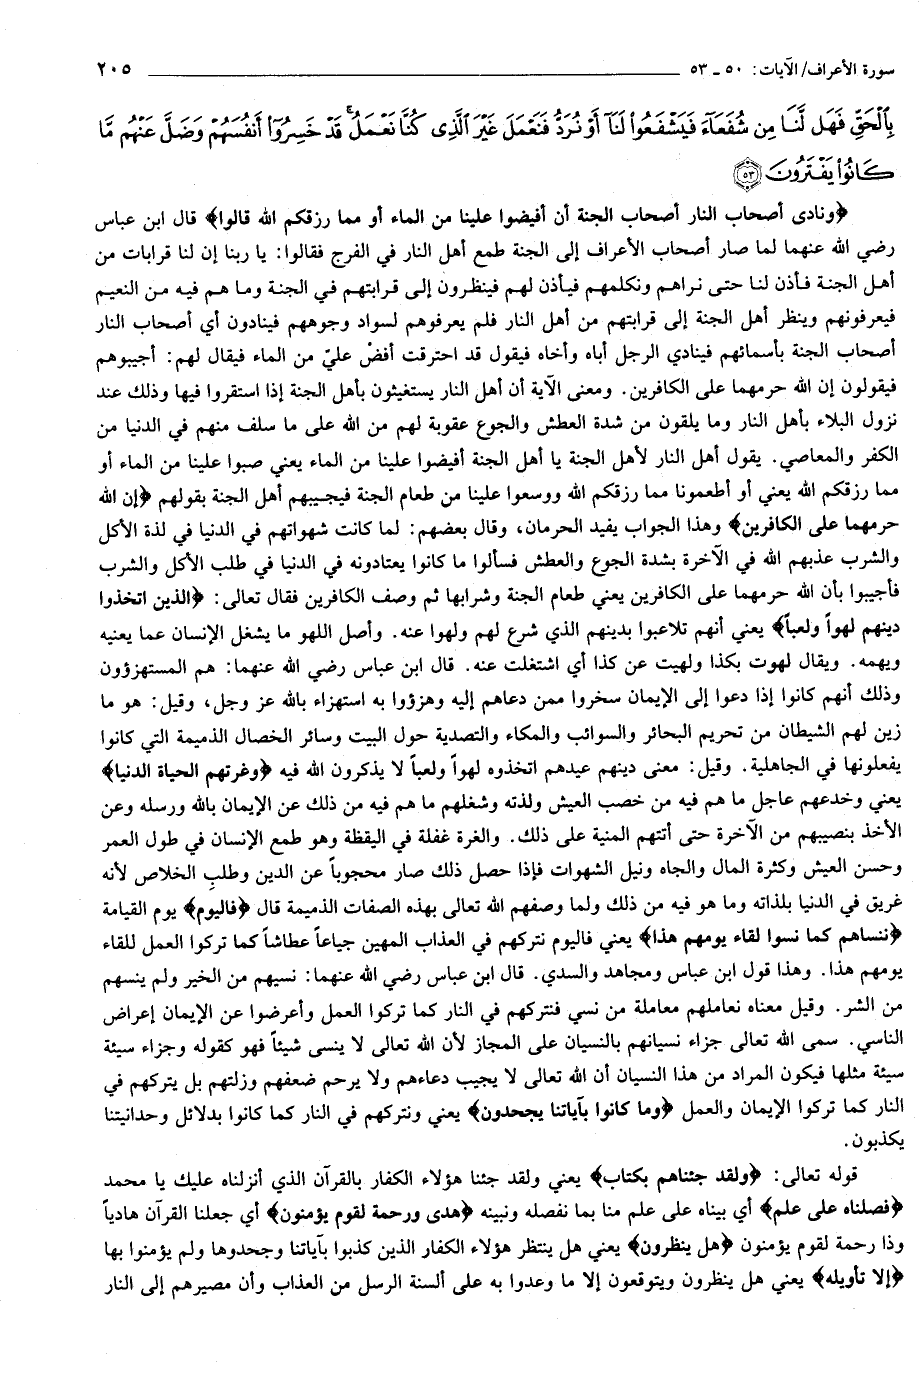 سورة الأعراف/ الآيات: ٥٠ ـ ٥٣ ٢٠٥
بِٱلْحَقِّ فَهَل لَّنَا مِن شُفَعَآءَ فَيَشْفَعُوا۟ لَنَآ أَوْ نُرَدُّ فَنَعْمَلَ غَيْرَ ٱلَّذِى كُنَّا نَعْمَلُ ۚ قَدْ خَسِرُوٓا۟ أَنفُسَهُمْ وَضَلَّ عَنْهُم مَّا
كَانُوا۟ يَفْتَرُونَ ٥٣
﴿ونادى أصحاب النار أصحاب الجنة أن أفيضوا علينا من الماء أو مما رزقكم الله قالوا﴾ قال ابن عباس
رضي الله عنهما لما صار أصحاب الأعراف إلى الجنة طمع أهل النار في الفرج فقالوا: يا ربنا إن لنا قرابات من
أهل الجنة فأذن لنا حتى نراهم ونكلمهم فيأذن لهم فينظرون إلى قرابتهم في الجنة وما هم فيه من النعيم
فيعرفونهم وينظر أهل الجنة إلى قرابتهم من أهل النار فلم يعرفوهم لسواد وجوههم فينادون أي أصحاب النار
أصحاب الجنة بأسمائهم فينادي الرجل أباه وأخاه فيقول قد احترقت أفضْ عليّ من الماء فيقال لهم: أجيبوهم
فيقولون إن الله حرمهما على الكافرين. ومعنى الآية أن أهل النار يستغيثون بأهل الجنة إذا استقروا فيها وذلك عند
نزول البلاء بأهل النار وما يلقون من شدة العطش والجوع عقوبة لهم من الله على ما سلف منهم في الدنيا من
الكفر والمعاصي. يقول أهل النار لأهل الجنة يا أهل الجنة أفيضوا علينا من الماء يعني صبوا علينا من الماء أو
مما رزقكم الله يعني أو أطعمونا مما رزقكم الله ووسعوا علينا من طعام الجنة فيجيبهم أهل الجنة بقولهم ﴿إن الله
حرمهما على الكافرين﴾ وهذا الجواب يفيد الحرمان، وقال بعضهم: لما كانت شهواتهم في الدنيا في لذة الأكل
والشرب عذبهم الله في الآخرة بشدة الجوع والعطش فسألوا ما كانوا يعتادونه في الدنيا في طلب الأكل والشرب
فأجيبوا بأن الله حرمهما على الكافرين يعني طعام الجنة وشرابها ثم وصف الكافرين فقال تعالى: ﴿الذين اتخذوا
دينهم لهواً ولعباً﴾ يعني أنهم تلاعبوا بدينهم الذي شرع لهم ولهوا عنه. وأصل اللهو ما يشغل الإنسان عما يعنيه
ويهمه. ويقال لهوت بكذا ولهيت عن كذا أي اشتغلت عنه. قال ابن عباس رضي الله عنهما: هم المستهزؤون
وذلك أنهم كانوا إذا دعوا إلى الإيمان سخروا ممن دعاهم إليه وهزؤوا به استهزاء بالله عز وجل، وقيل: هو ما
زين لهم الشيطان من تحريم البحائر والسوائب والمكاء والتصدية حول البيت وسائر الخصال الذميمة التي كانوا
يفعلونها في الجاهلية. وقيل: معنى دينهم عيدهم اتخذوه لهواً ولعباً لا يذكرون الله فيه ﴿وغرتهم الحياة الدنيا﴾
يعني وخدعهم عاجل ما هم فيه من خصب العيش ولذته وشغلهم ما هم فيه من ذلك عن الإيمان بالله ورسله وعن
الأخذ بنصيبهم من الآخرة حتى أتتهم المنية على ذلك. والغرة غفلة في اليقظة وهو طمع الإنسان في طول العمر
وحسن العيش وكثرة المال والجاه ونيل الشهوات فإذا حصل ذلك صار محجوباً عن الدين وطلبِ الخلاص لأنه
غريق في الدنيا بلذاته وما هو فيه من ذلك ولما وصفهم الله تعالى بهذه الصفات الذميمة قال ﴿فاليوم﴾ يوم القيامة
﴿ننساهم كما نسوا لقاء يومهم هذا﴾ يعني فاليوم نتركهم في العذاب المهين جياعاً عطاشاً كما تركوا العمل للقاء
يومهم هذا. وهذا قول ابن عباس ومجاهد والسدي. قال ابن عباس رضي الله عنهما: نسيهم من الخير ولم ينسهم
من الشر. وقيل معناه نعاملهم معاملة من نسي فنتركهم في النار كما تركوا العمل وأعرضوا عن الإيمان إعراض
الناسي. سمى الله تعالى جزاء نسيانهم بالنسيان على المجاز لأن الله تعالى لا ينسى شيئاً فهو كقوله وجزاء سيئة
سيئة مثلها فيكون المراد من هذا النسيان أن الله تعالى لا يجيب دعاءهم ولا يرحم ضعفهم وزلتهم بل يتركهم في
النار كما تركوا الإيمان والعمل ﴿وما كانوا بآياتنا يجحدون﴾ يعني ونتركهم في النار كما كانوا بدلائل وحدانيتنا
يكذبون.
قوله تعالى: ﴿ولقد جئناهم بكتاب﴾ يعني ولقد جئنا هؤلاء الكفار بالقرآن الذي أنزلناه عليك يا محمد
﴿فصلناه على علم﴾ أي بيناه على علم منا بما نفصله ونبينه ﴿هدى ورحمة لقوم يؤمنون﴾ أي جعلنا القرآن هادياً
وذا رحمة لقوم يؤمنون ﴿هل ينظرون﴾ يعني هل ينتظر هؤلاء الكفار الذين كذبوا بآياتنا وجحدوها ولم يؤمنوا بها
﴿إلا تأويله﴾ يعني هل ينظرون ويتوقعون إلا ما وعدوا به على ألسنة الرسل من العذاب وأن مصيرهم إلى النار